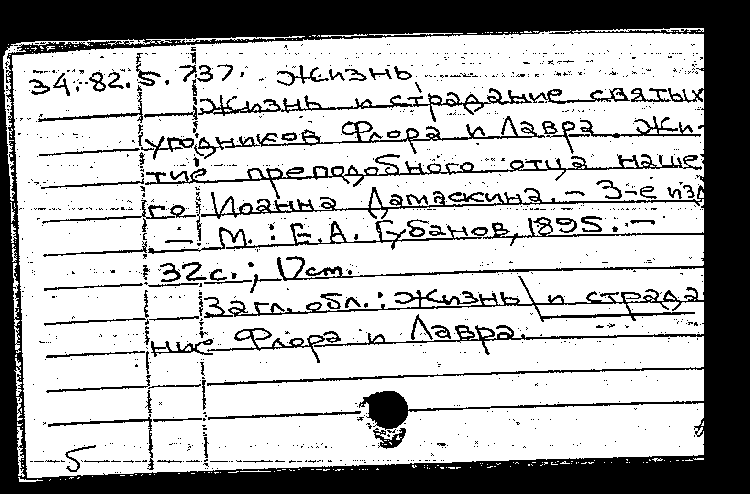 34.82.5.737. Жизнь,
Жизнь и страдание святых
угодников Флора и Лавра. Жи-
тие преподобного отца наше-
го Иоанна Дамаскина. - 3-е изд
. — М. : Е.А. Губанов, 1895. —
32с. ; 17cm.
Загл. обл. : Жизнь и страда
ние Флора и Лавра.
5